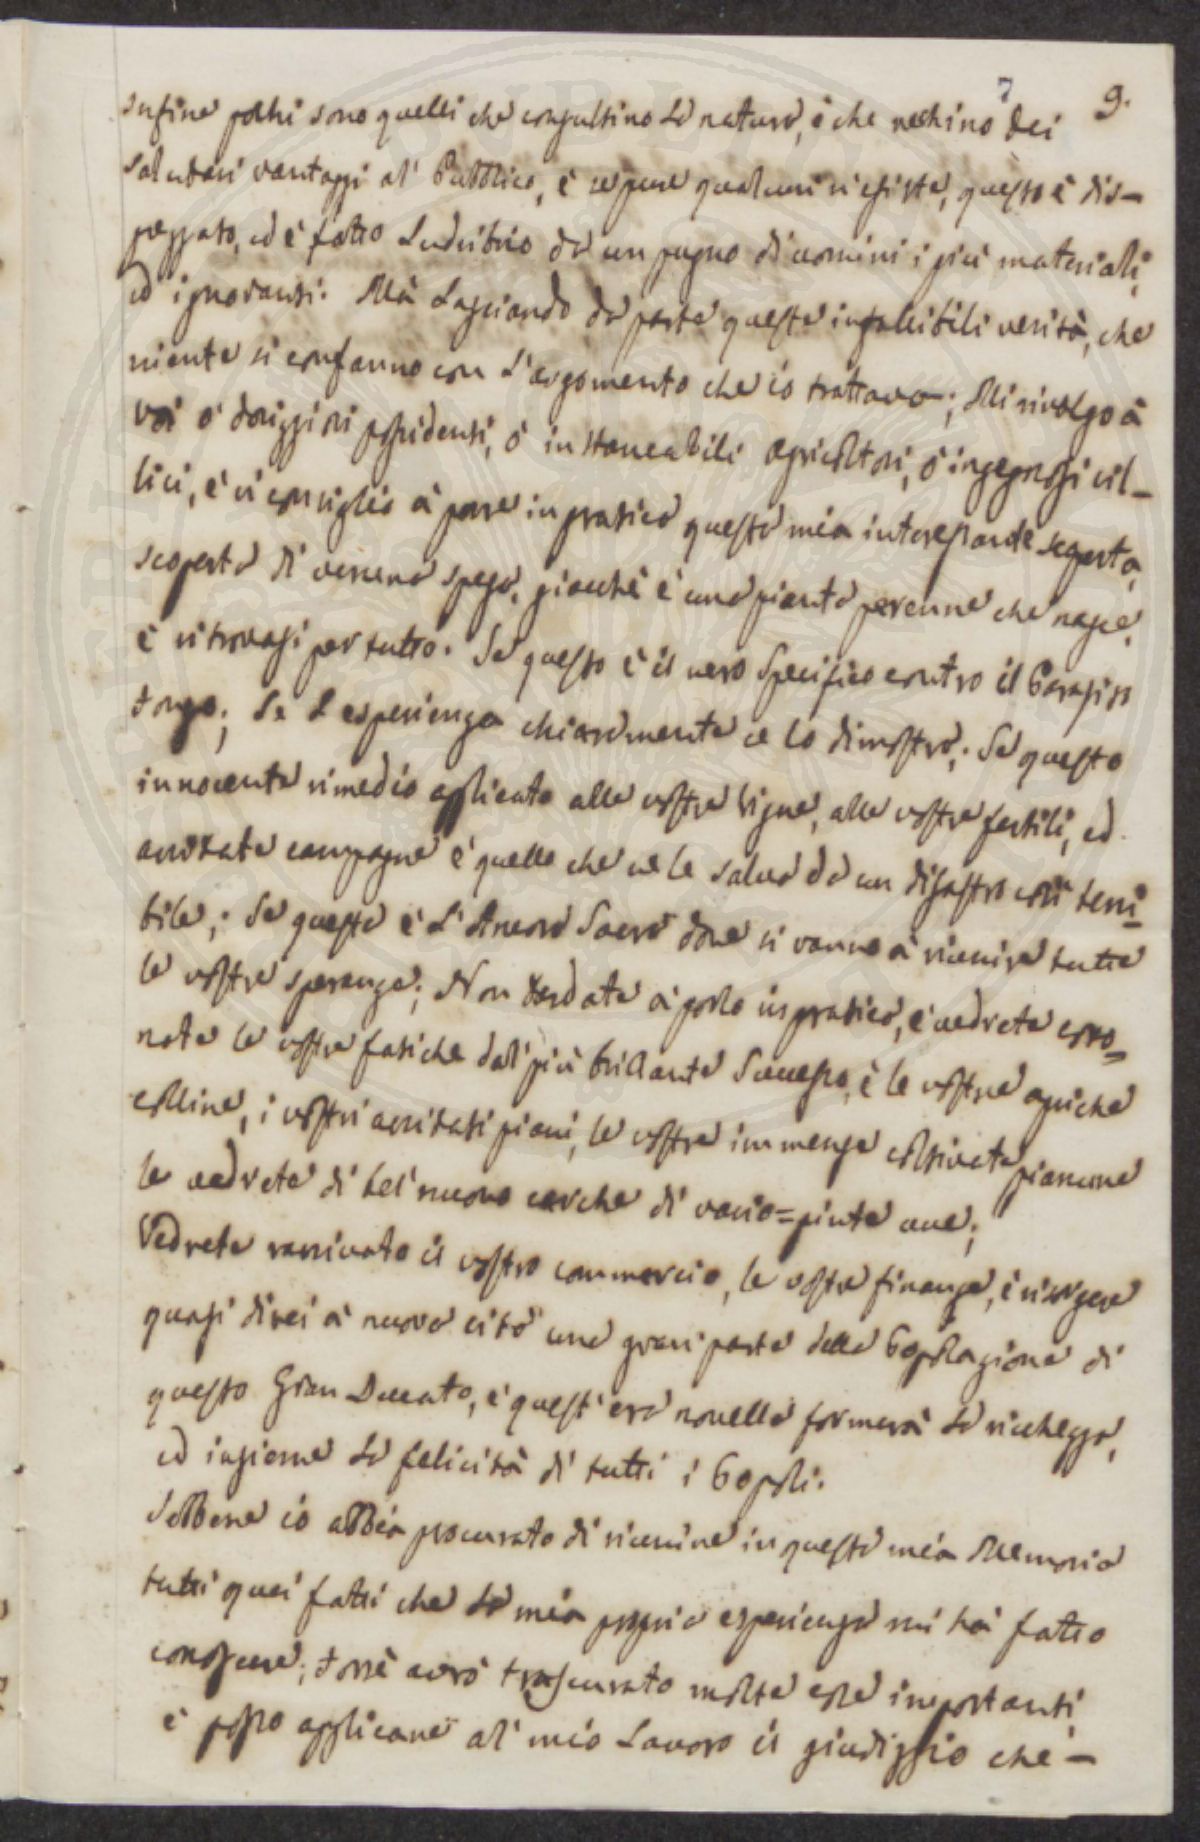 7 9.
Infine pochi sono quelli che consultino la natura, è che rechino dei
salutari vantaggi al' Pubblico, è se pure qualcuni n'esiste, questo è dis-
prezzato, ed è fatto Ludribrio da un pugno di uomini i più materiali,
ed ignoranti. Mà Lasciando da parte queste infallibili verità, che
niente si confanno con L'argomento che io trattavo; Mi rivolgo à
voi ò possidenti, ò instancabili agricoltori, ò ingegnosi vil-
lici, è vi consiglio à porre in pratica questa mia interessante scoperta,
scoperta di veruna spesa, giacchè è una pianta perenne che nasce,
è ritrovasi per tutto. Se questo è il vero Specifico contro il
; Se L'esperienza chiaramente ve lo dimostra; Se questo
innocente rimedio applicato alle vostre Vigne, alle vostre fertili, ed
campagne è quello che ve le salva da un disastro così terri=
bile; Se questa è L'Ancora Sacra dove si vanno à riunire tutte
le vostre speranze; Non tardate à porlo in pratica, è vedrete coro=
nate le vostre fatiche dal' più brillante Successo, è le vostre apriche
colline, i vostri piani, le vostre immense coltivate pianure
le vedrete di bel' nuovo cariche di vario=pinte uve;
Vedrete ravvivato il vostro commercio, le vostre finanze, è risorgere
quasi direi à nuova vità una gran parte della Popolazione di
questo Gran Ducato, è quest'era novella formerà La ricchezza,
ed insieme La felicità di tutti i Popoli.
Sebbene io abbia procurato di riunire in questa mia Memoria
tutti quei fatti che La mia propria esperienza mi hà fatto
conoscere, forsè avrò trascurato molte cose importanti,
è posso applicare al' mio Lavoro il giudizzio che-